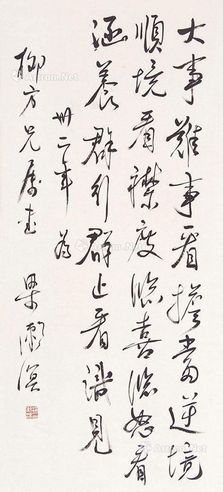 大事難事看擔當逆境
順境看襟度臨喜臨怒看
涵養群行群止看識見
卅二年 為
柳方兄屬書 梁漱溟
Artron.Net